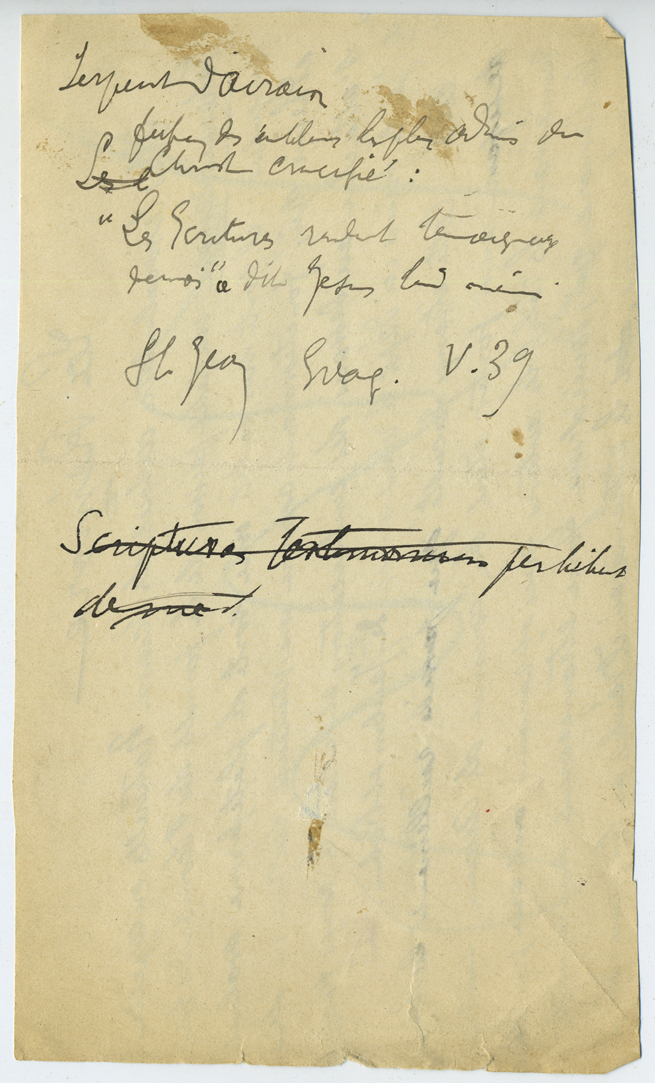 Serpent d'airain
des emblèmes les plus du
Les Christ crucifié :
"Les Ecritures rendent témoignage
de moi" a dit Jésus lui même
St Jean Evag. V. 39
Scripturas testimonium perhibent
de me.